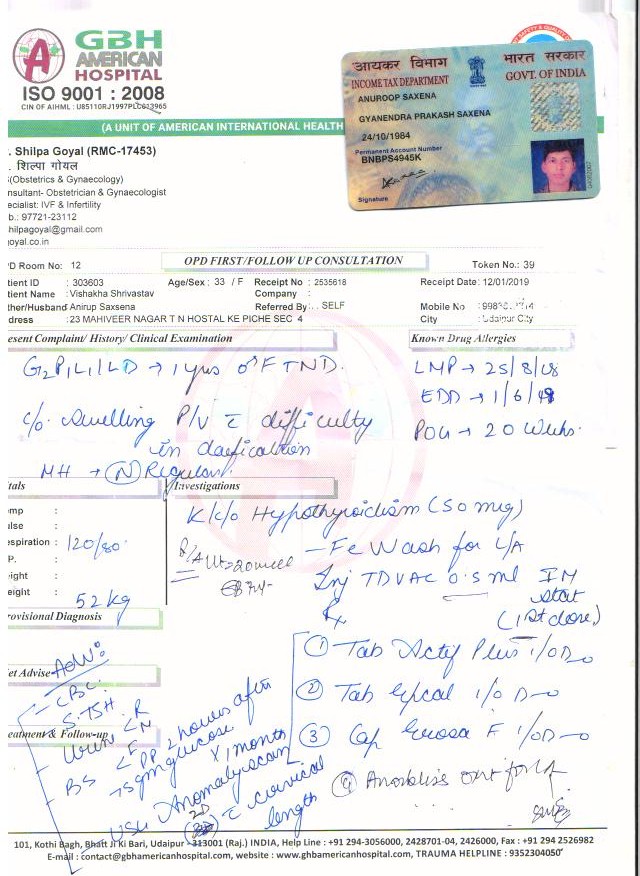 GBH
AMERICAN
HOSPITAL
ISO 9001 : 2008
CIN OF AIHML : U85110RJ1997PLC013965
(A UNIT OF AMERICAN INTERNATIONAL HEALTH
आयकर विभाग
भारत सरकार
INCOME TAX DEPARTMENT
GOVT. OF INDIA
ANUROOP SAXENA
GYANENDRA PRAKASH SAXENA
24/10/1984
Permanent Account Number
BNBPS4945K
Signature
. Shilpa Goyal (RMC-17453)
. शिल्पा गोयल
(Obstetrics & Gynaecology)
nsultant- Obstetrician & Gynaecologist
ecialist: IVF & Infertility
b.: 97721-23112
hilpagoyal@gmail.com
goyal.co.in
OPD FIRST/FOLLOW UP CONSULTATION
D Room No: 12
Token No.: 39
tient ID : 303603
Age/Sex : 33 / F
Receipt No : 2535618
Receipt Date: 12/01/2019
tient Name : Vishakha Shrivastav
Company :
ther/Husband Anirup Saxsena
Referred By : SELF
Mobile No
dress : 23 MAHIVEER NAGAR T N HOSTAL KE PICHE SEC 4
City : Udaipur City
esent Complaint/ History/ Clinical Examination
Known Drug Allergies
G2P1L1 / LD → 1 yrs FTND.
LMP → 25/8/18
EDD → 1/6/19
c/o swelling P/V c difficulty
POG → 20 Weeks.
in
MH → (N) Regular.
tals
Investigations
emp :
ulse :
espiration : 120/80
P. :
eight :
eight : 52 kg
K/c/o Hypothyroidism (50 mcg)
P/A Ut = 20 week
– Fe Wash for L/A
Inj TDVAC 0.5 ml IM
stat
(1st dose)
rovisional Diagnosis
Rx
① Tab Actif Plus 1 OD
② Tab 1 OD
③ Cap F 1 OD
④ Anobliss oint for L/A
iet Advise
Adv:
– CBC
S.TSH
eatment & Follow-up
– Urine < R
M
– BS < F
PP 2 hours after
75gm glucose
x 1 month
USG Anomaly scan
(2D) c cervical
length
101, Kothi Bagh, Bhatt Ji Ki Bari, Udaipur - 313001 (Raj.) INDIA, Help Line : +91 294-3056000, 2428701-04, 2426000, Fax : +91 294 2526982
E-mail : contact@gbhamericanhospital.com, website : www.gbhamericanhospital.com, TRAUMA HELPLINE : 9352304050